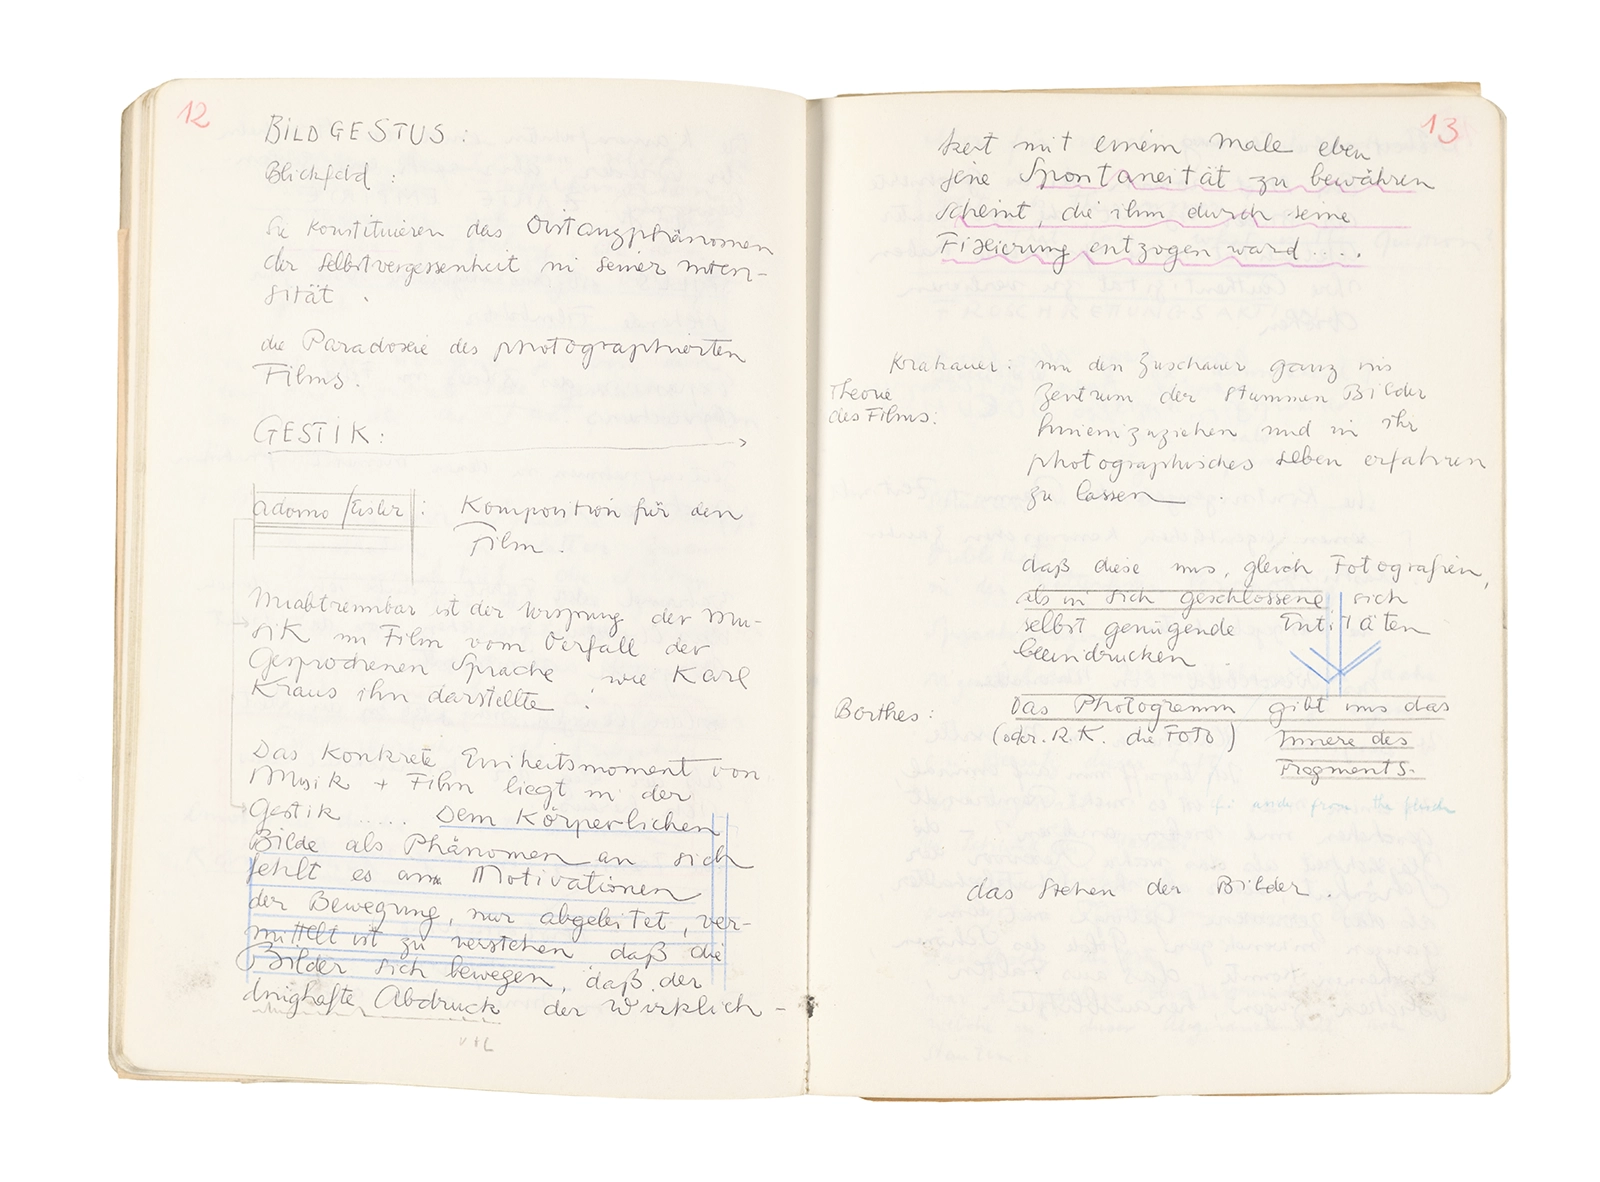 12
BILDGESTUS:
Blickfeld:
Sie konstituieren das Distanzphänomen
der Selbstvergessenheit in seiner Inten-
sität.
die Paradoxie des photographierten
Films.
GESTIK:
Adorno/Eisler: Komposition für den
Film.
Unabtrennbar ist der Ursprung der Mu-
sik im Film vom Verfall der
Gesprochenen Sprache, wie Karl
Kraus ihn darstellte.
Das Konkrete Einheitsmoment von
Musik + Film liegt in der
Gestik ..... Dem Körperlichen
Bilde als Phänomen an sich
fehlt es an Motivationen
der Bewegung, nur abgeleitet, ver-
mittelt ist zu verstehen daß die
Bilder sich bewegen, daß der
dinghafte Abdruck der Wirklich-
13
keit mit einem Male eben
jene Spontaneität zu bewähren
scheint, die ihm durch seine
Fixierung entzogen ward ....
Krakauer: um den Zuschauer ganz ins
Theorie
des Films:
Zentrum der stummen Bilder
hineinzuziehen und in ihr
photographisches Leben erfahren
zu lassen.
daß diese uns, gleich Fotografien,
als in sich geschlossene, sich
selbst genügende Entitäten
beeindrucken.
Barthes: Das Photogramm gibt uns das
(oder R.K. die Foto) Innere des
Fragments.
aside from the
das Stehen der Bilder.